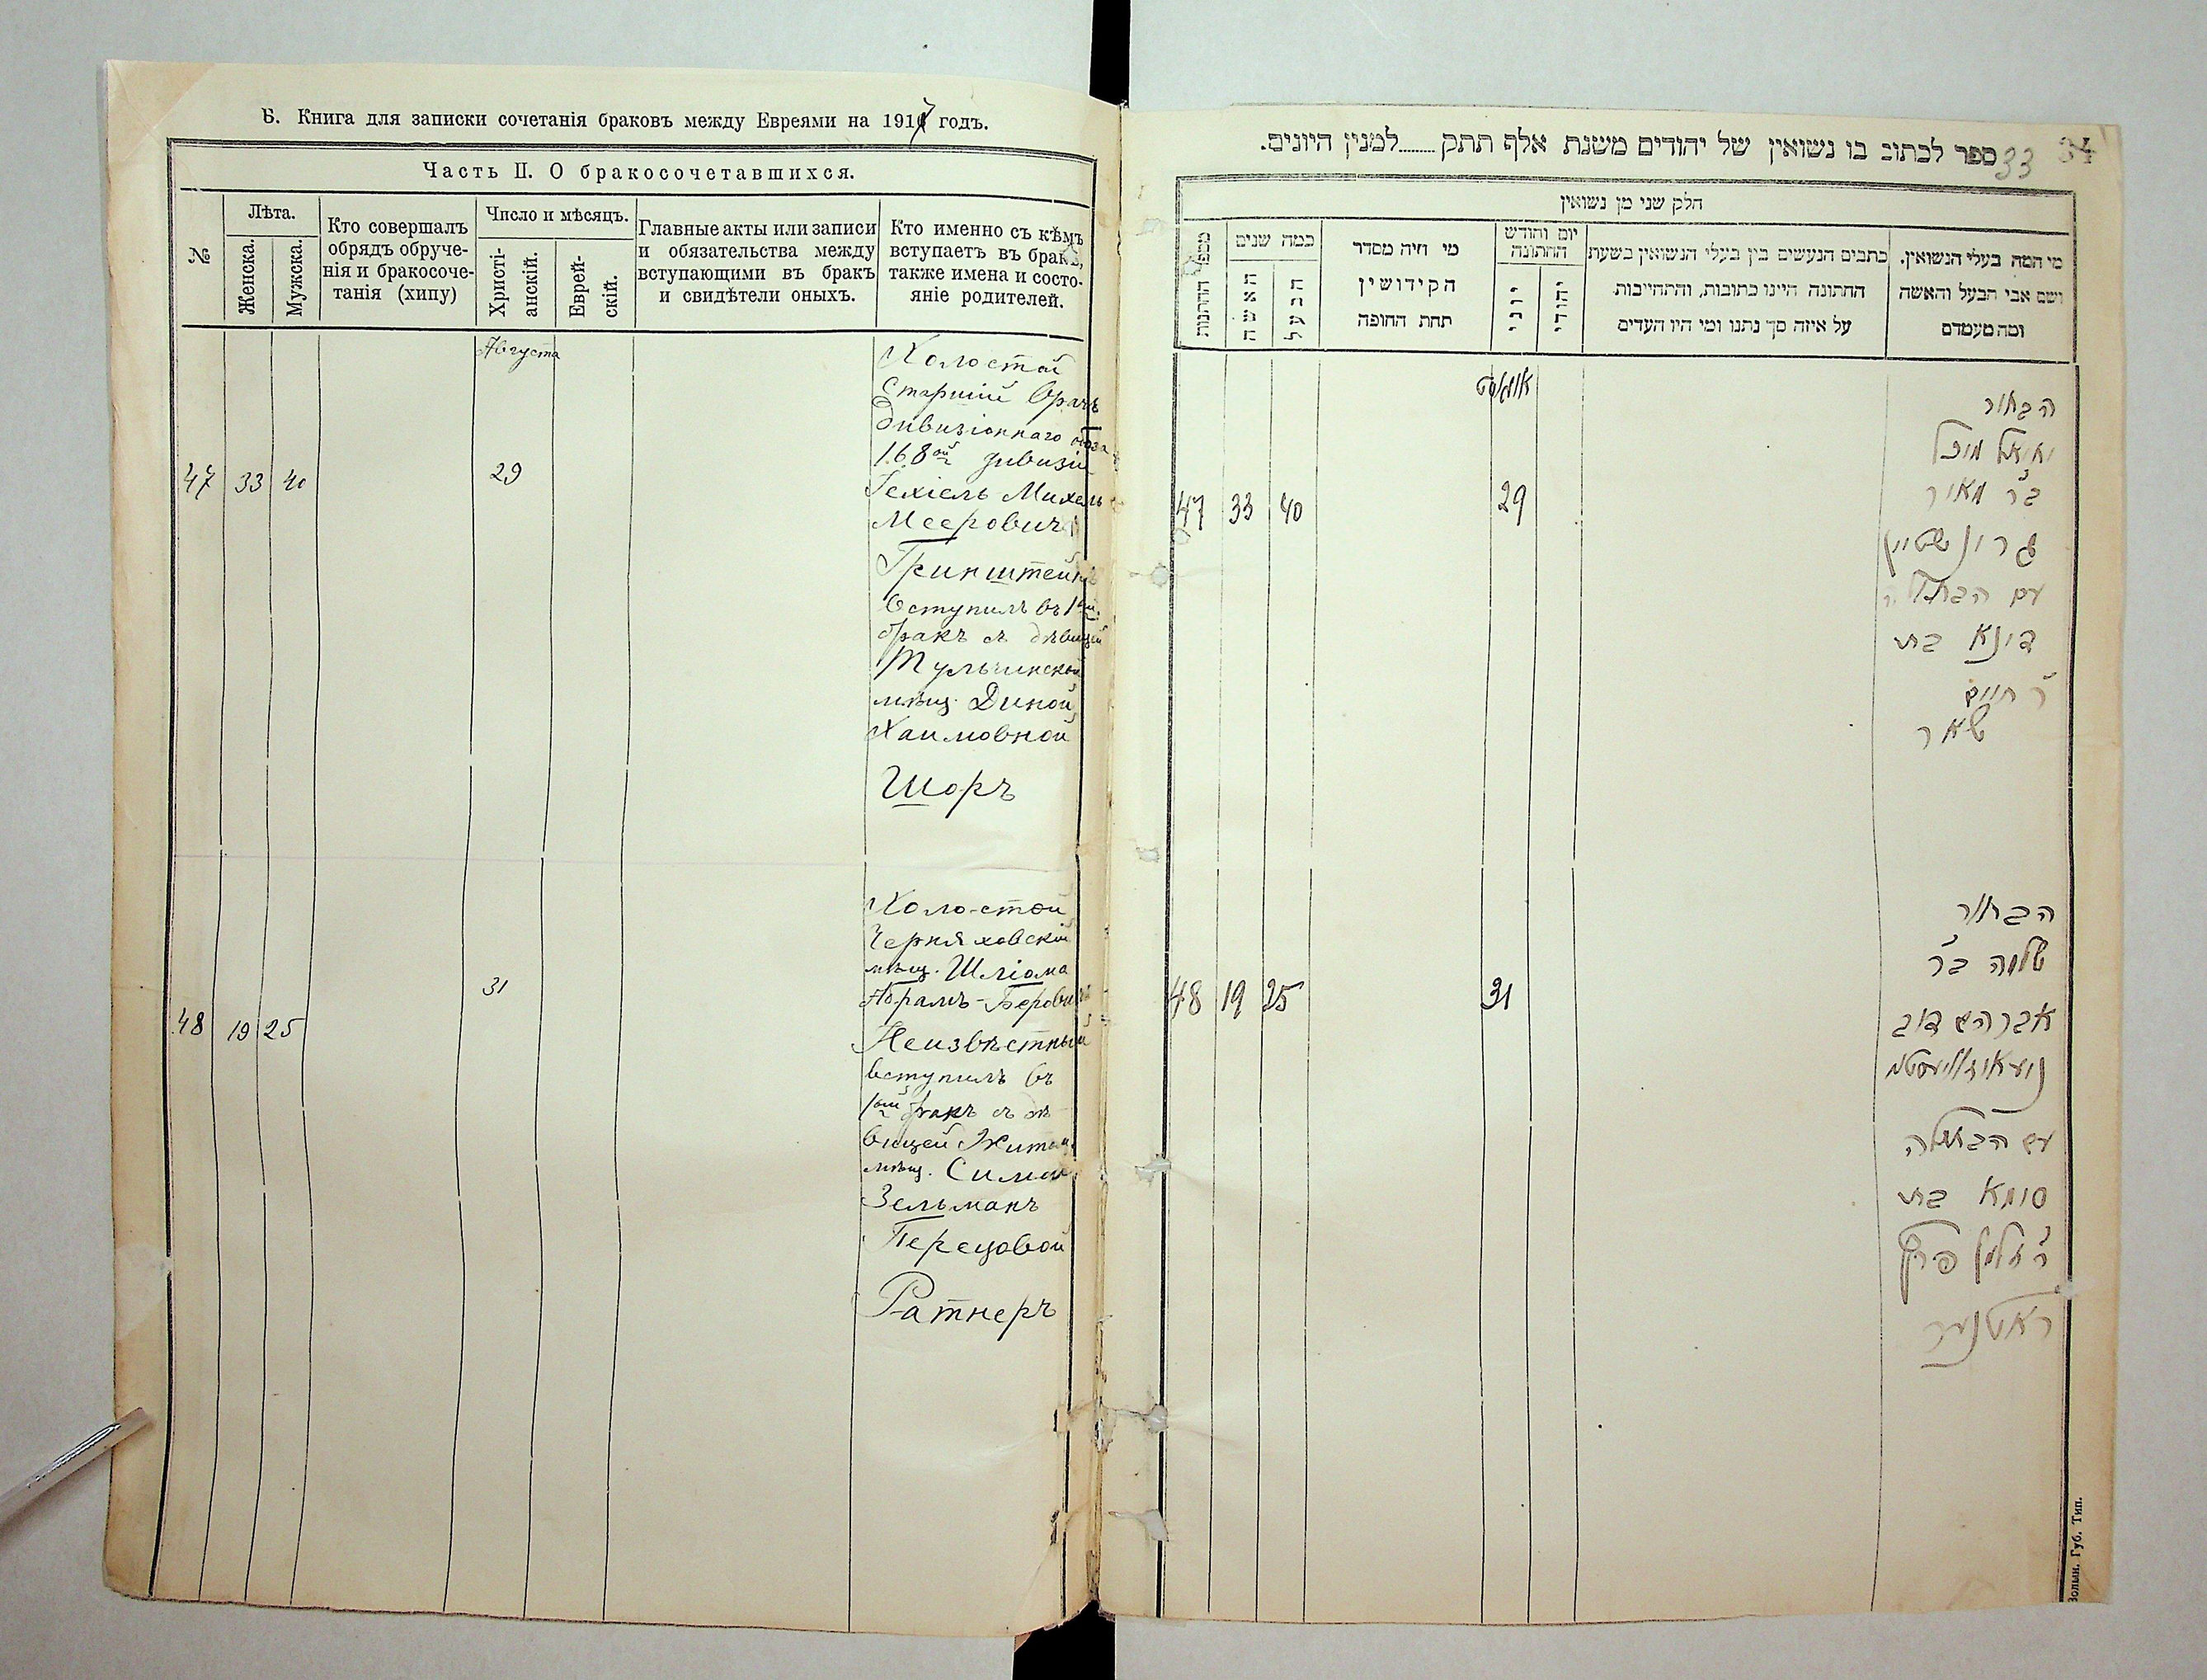 Б. Книга для записки сочетанія браковъ между Евреями на 1917 годъ.
Часть II. О бракосочетавшихся.
№
Лѣта.
Женска.
Мужска.
Кто совершалъ
обрядъ обруче-
нія и бракосоче-
танія (хипу)
Число и мѣсяцъ.
Христі-
анскій.
Еврей-
скій.
Главные акты или записи
и обязательства между
вступающими въ бракъ
и свидѣтели оныхъ.
Кто именно съ кѣмъ
вступаетъ въ бракъ,
также имена и состо-
яніе родителей.
Августа
47 33 40 29
Холостой
Старшій Врачъ
Дивизіоннаго обоза
168ой дивизіи
Гехіель Михель
Мееровичъ
Гринштейнъ
вступилъ въ 1ый
бракъ съ дѣвицей
Тульчинской
мѣщ. Диной
Хаимовной
Шоръ
48 19 25 31
Холостой
Черняховскій
мѣщ. Шліома
Абрамъ-Беровичъ
Неизвѣстный
вступилъ въ
1ый бракъ съ дѣ
вицей Житом.
мѣщ. Симой
Зельманъ
Перецовой
Ратнеръ
34
33
ספר לכתוב בו נשואין של יהודים משנת אלף תתק........למנין היונים.
חלק שני מן נשואין
מספר החתונות
כמה שנים
האשה
הבעל
מי היה מסדר
הקידושין
תחת החופה
יום וחודש
החתונה
יוני
יהודי
כתבים הנעשים בין בעלי הנשואין בשעת
החתונה היינו כתובות, והתחייבות
על איזה סך נתנו ומי היו העדים
מי המה בעלי הנשואין.
ושם אבי הבעל והאשה
ומה מעמדם
אויגוסט
47 33 40 29
הבחור
יחיאל מיכל
ב״ר מאיר
גרינשטיין
עם הבתולה
דינא בת
ר׳ חיים
שאר
48 19 25 31
הבחור
שלמה ב״ר
אברהם דוב
עם הבתולה
סימא בת
ר׳ זלמן פרץ
ראטנער
Волын. Губ. Тип.